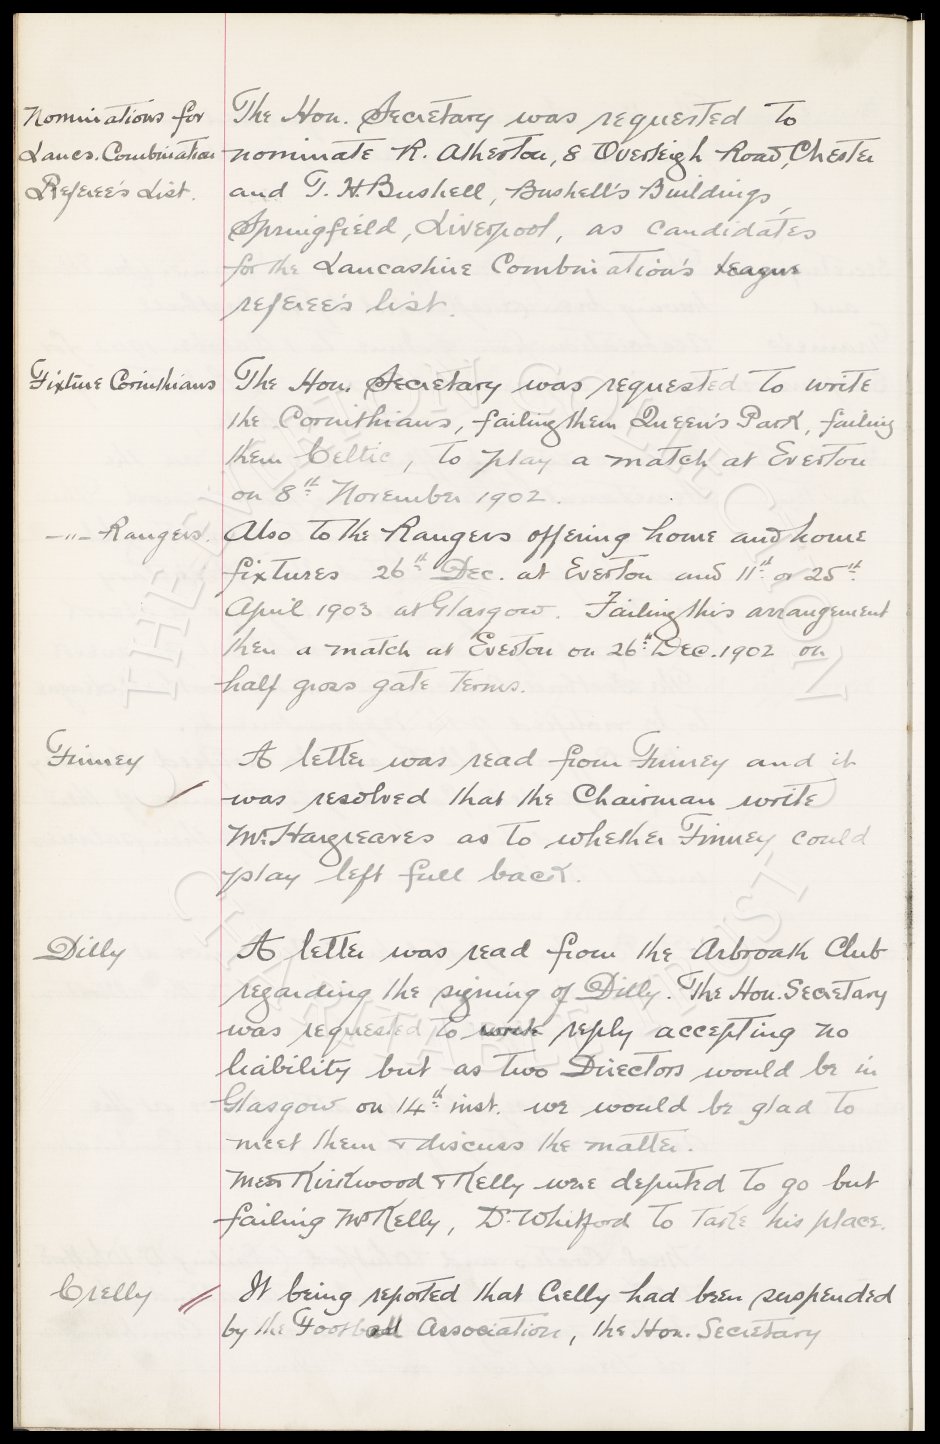 Nominations for
Lancs. Combination
Referee's List.
The Hon. Secretary was requested to
nominate R. Atherton, 8 Overleigh Road, Chester
and T. H. Bushell, Bushell's Buildings,
Springfield, Liverpool, as candidates
for the Lancashire Combination's League
referee's list.
Fixture Corinthians
The Hon. Secretary was requested to write
the Corinthians, failing them Queen's Park, failing
them Celtic, to play a match at Everton
on 8th November 1902.
-"- Rangers.
Also to the Rangers offering home and home
fixtures 26th Dec. at Everton and 11th or 25th
April 1903 at Glasgow. Failing this arrangement
then a match at Everton on 26th Dec. 1902 on
half gross gate terms.
Finney
A letter was read from Finney and it
was resolved that the Chairman write
Mr. Hargreaves as to whether Finney could
play left full back.
Dilly
A letter was read from the Arbroath Club
regarding the signing of Dilly. The Hon. Secretary
was requested to write reply accepting no
liability but as two Directors would be in
Glasgow on 14th inst. we would be glad to
meet them & discuss the matter.
Messrs Kirkwood & Kelly were deputed to go but
failing Mr Kelly, Dr. Whitford to take his place.
Crelly
It being reported that Crelly had been suspended
by the Football Association, the Hon. Secretary